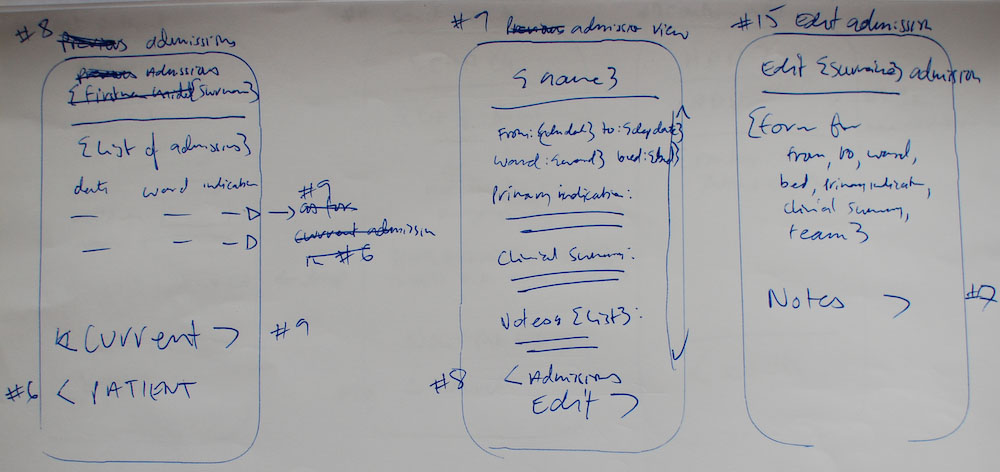 #8
Previous admissions
Previous Admissions
{surname}
{List of admissions}
date ward indication
#9
as for
current admission
in #6
Current >
#9
#6
< PATIENT
#9
Previous admission view
{name}
From: to:
ward: {ward} bed: {bed}
Primary indication:
Clinical Summary:
{List}:
#8
< Admissions
Edit >
#15 Edit admission
Edit {surname} admission
{form for
from, to, ward,
bed, primary indication,
clinical summary,
team}
Notes >
#7